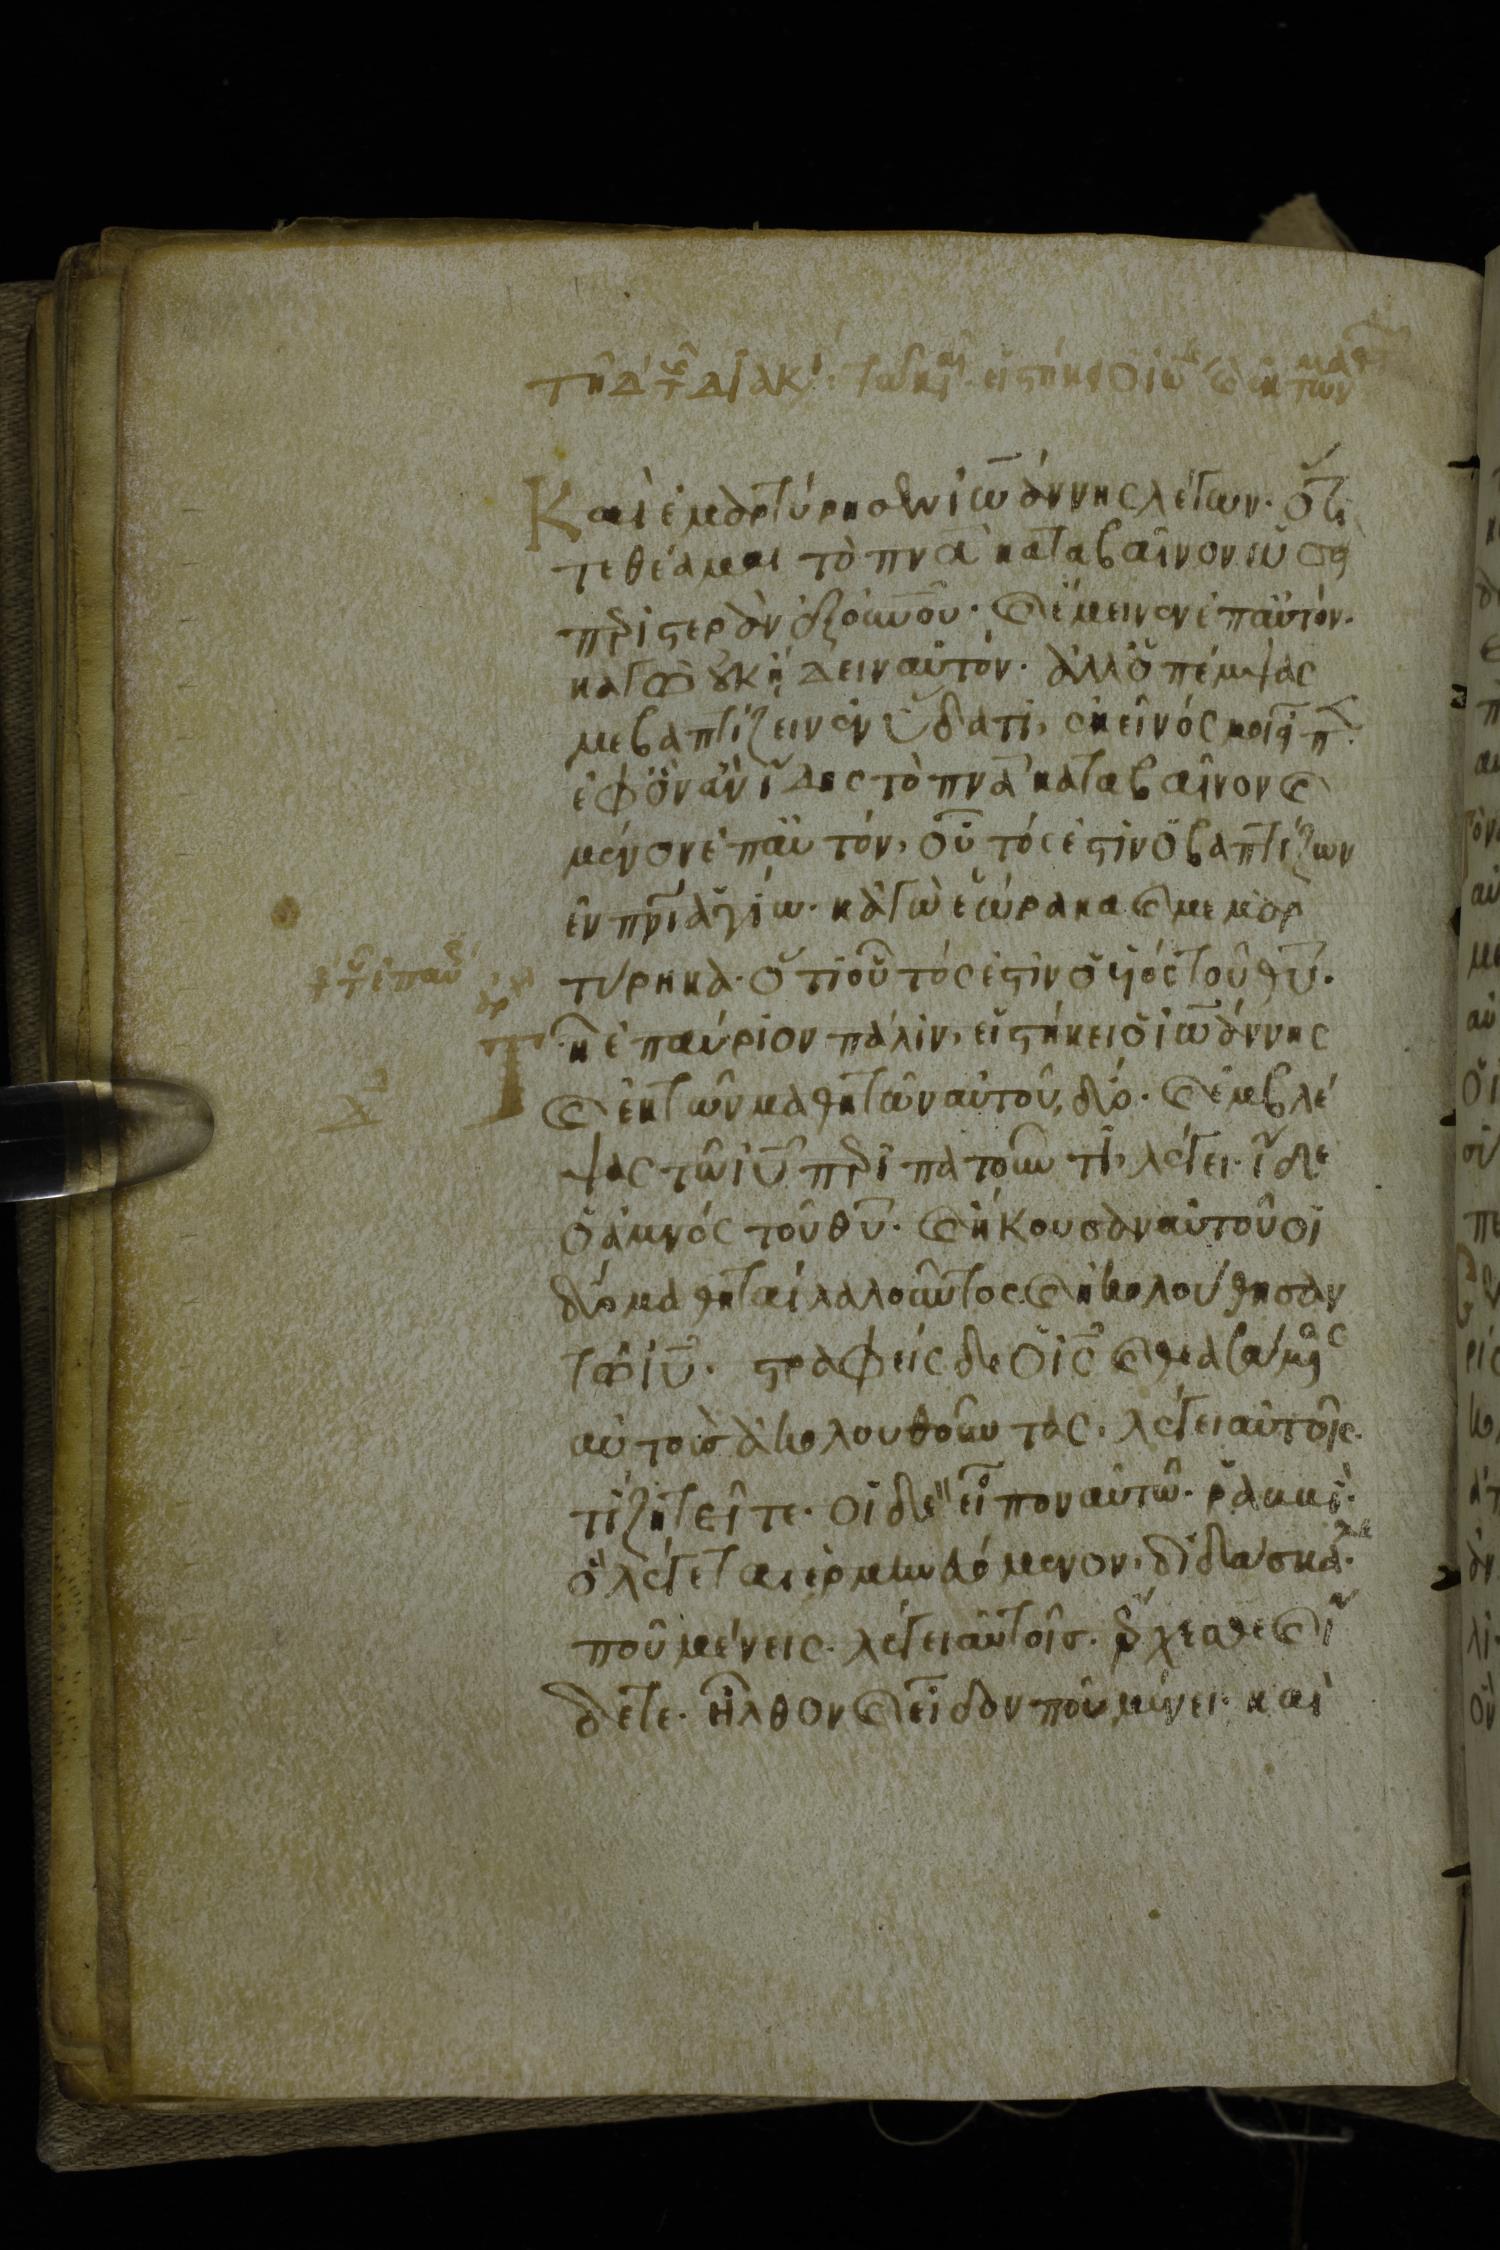 Καὶ ἐμαρτύρησεν ἰω̅άννης λέγων· ὅτι
τεθέαμαι τὸ πν̅α καταβαῖνον ὡσ
περιστερὰν ἐξ ουν̅ου· καὶ ἔμεινεν ἐπ αὐτόν·
κἀγὼ οὐκ ἤδειν αὐτόν· ἀλλ ὁ πέμψας
με βαπτίζειν ἐν ὕδατι, ἐκεῖνός μοι εἶπ
ἐφ ὃν ἂν ἴδῃς τὸ πν̅α καταβαῖνον καὶ
μένον ἐπ αὐτόν, οὗτός ἐστιν ὁ βαπτίζων
ἐν πν̅ι ἁγίω· κἀγὼ ἑώρακα καὶ μεμαρ
τύρηκα· ὅτι οὗτός ἐστιν ὁ υἱὸς τοῦ θυ̅·
Τῇ ἐπαύριον πάλιν, εἱστήκει ὁ ἰω̅άννης
καὶ ἐκ τῶν μαθητῶν αὐτοῦ, δύο· καὶ ἐμβλέ
ψας τῶ ιυ̅ περιπατοῦντι, λέγει· ἴδε
ὁ ἀμνὸς τοῦ θυ̅· καὶ ἤκουσαν αὐτοῦ οἱ
δύο μαθηταὶ λαλοῦντος· καὶ ἠκολούθησαν
τῶ ιυ̅· στραφεὶς δὲ ὁ ις̅ καὶ θεασάμενος
αὐτοὺς ἀκολουθοῦντας, λέγει αὐτοῖς·
τί ζητεῖτε· οἱ δὲ εἶπον αὐτῶ· ῥαββί·
ὃ λέγεται ἑρμηνευόμενον, διδάσκαλε·
ποῦ μένεις· λέγει αὐτοῖς· ἔρχεσθε καὶ ἴ
δετε· ἦλθον καὶ εἶδον ποῦ μένει· καὶ